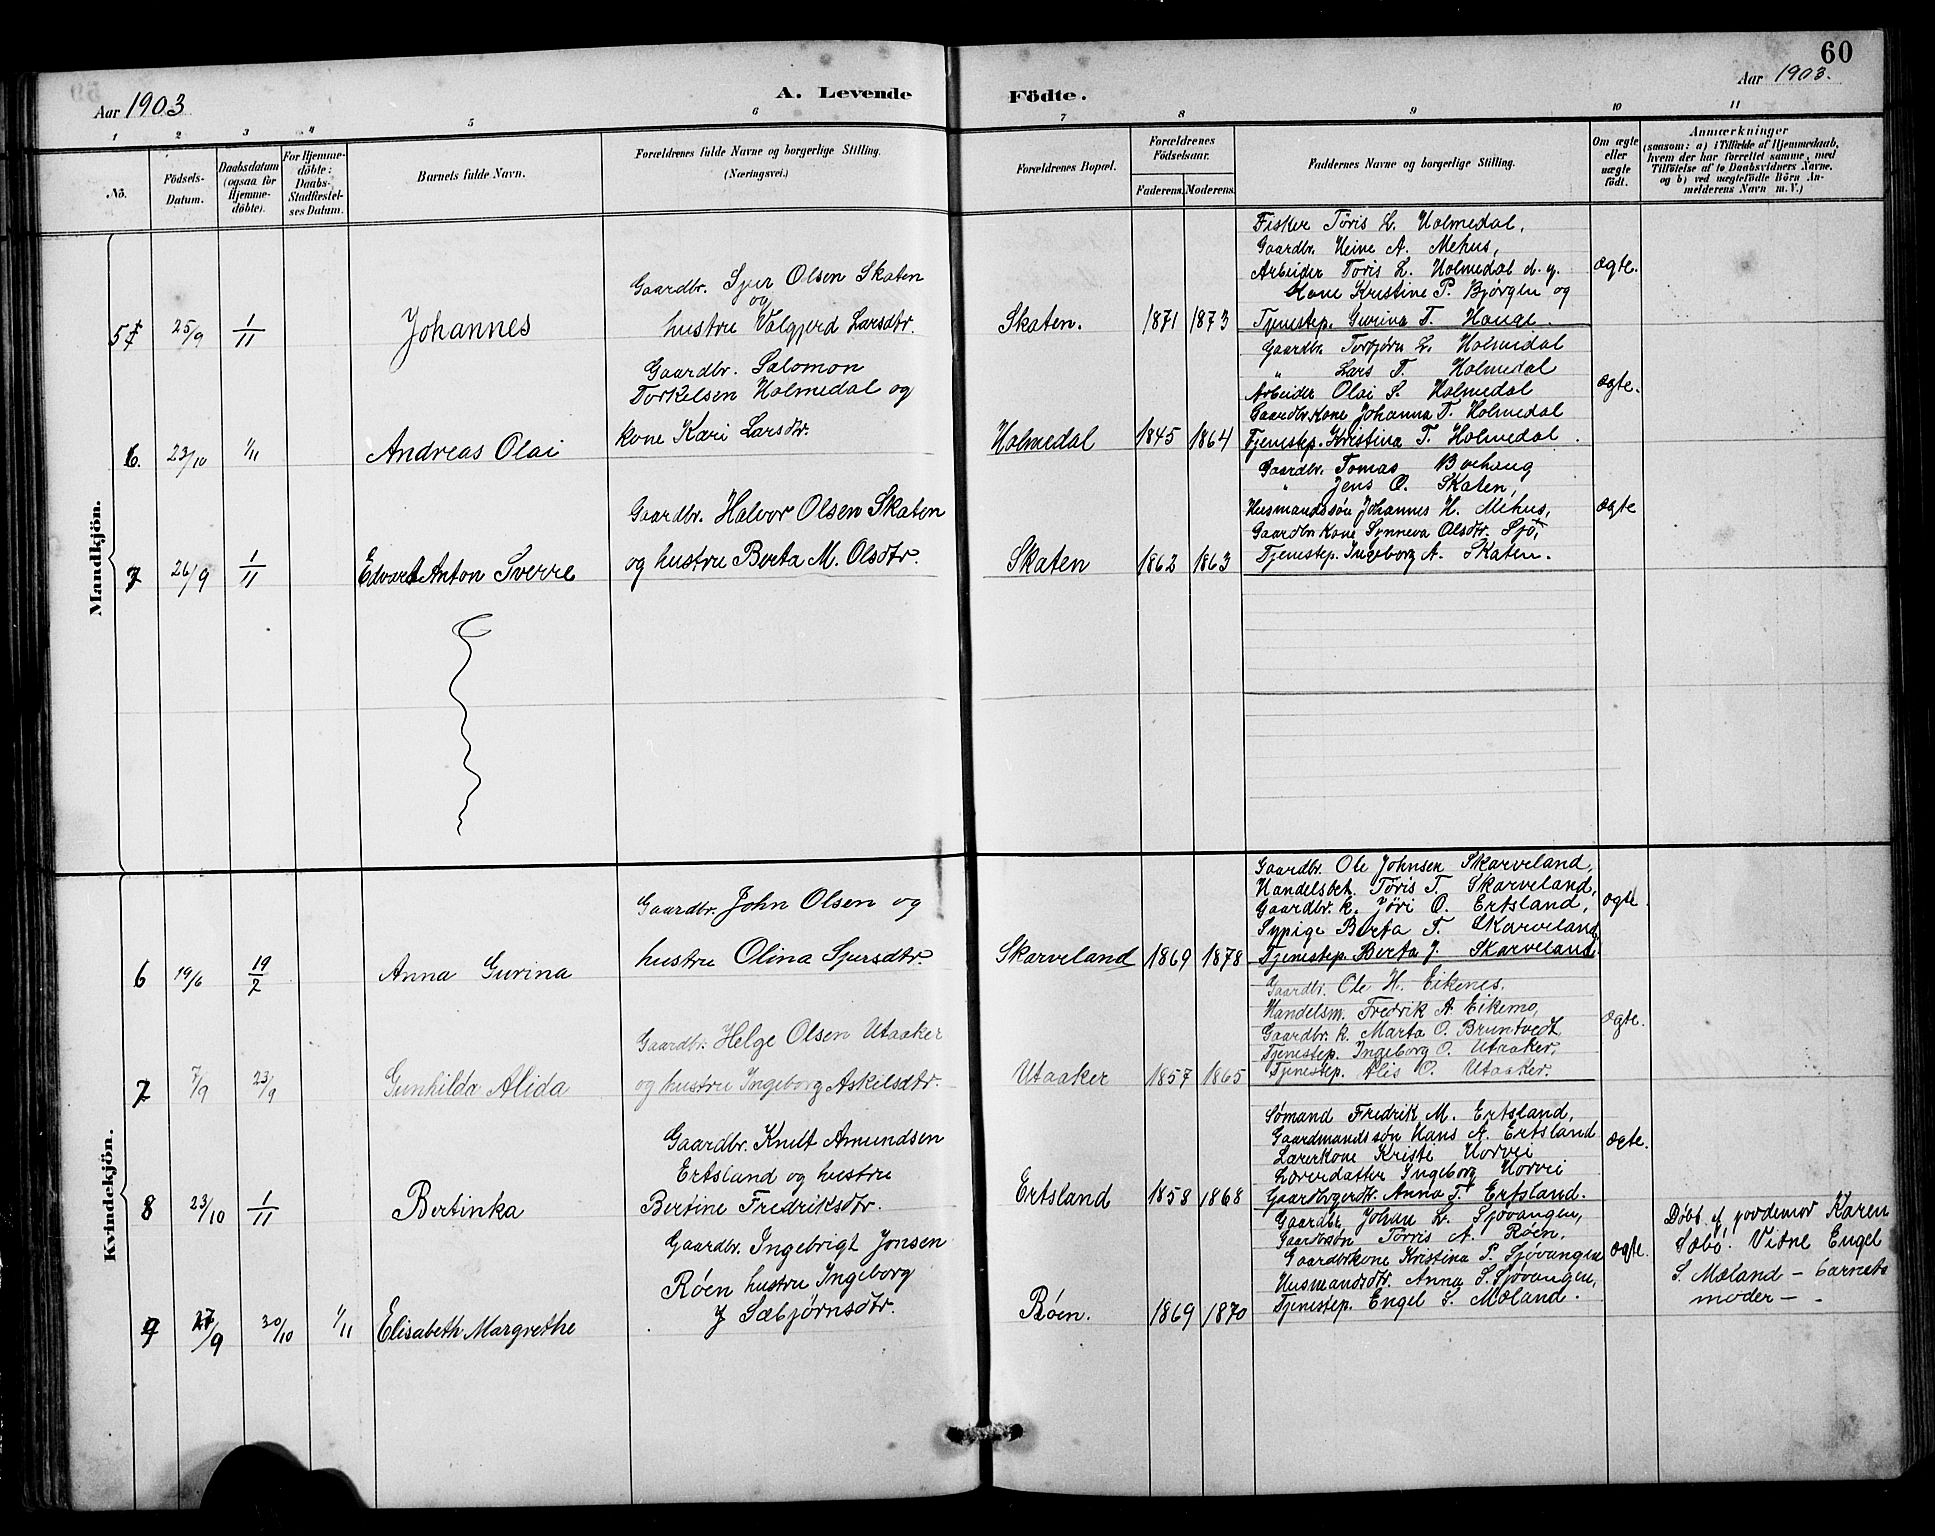 60
Aar 1903
A. Levende Födte.
Aar 1903.
1 2 3 4 5 6 7 8 9 10 11
No.
Födsels-
Datum.
Daabsdatum
(ogsaa for
Hjemme-
döbte).
For Hjemme-
döbte:
Daabs-
Stadfæstel-
ses Datum.
Barnets fulde Navn.
Forældrenes fulde Navne og borgerlige Stilling.
(Næringsvei.)
Forældrenes Bopæl.
Forældrenes
Födselsaar.
Faderens. Moderens.
Faddernes Navne og borgerlige Stilling.
Om ægte
eller
uægte
födt.
Anmærkninger
(saasom: a) i Tilfælde af Hjemmedaab,
hvem der har forrettet samme, med
Tilföielse af to Daabsvidners Navne,
og b) ved uægtefödte Börn An-
melderens Navn m. V.)
Mandkjön.
5 25/9 1/11
Johannes
Gaardbr. Sjur Olsen Skaten
og
hustru Valgjerd Larsdtr.
Skaten. 1871 1873
Fisker Töris L. Holmedal,
Gaardbr. Heine A. Mehus,
Arbeider Toris L. Holmedal d. y.
Kone Kristine P. Bjørgen og
Tjenestep. Gurina T. Hauge.
ægte.
6. 23/10 1/11
Andreas Olai
Gaardbr. Salomon
Torkelsen Holmedal og
kone Kari Larsdtr.
Holmedal 1845 1864
Gaardbr. Torbjørn L. Holmedal
" Lars T. Holmedal
Arbeider Olai S. Holmedal
Gaardbr.kone Johanna T. Holmedal
Tjenestep. Kristina T. Holmedal.
ægte.
7 26/9 1/11
Edvard Anton Sverre
Gaardbr. Halvor Olsen Skaten
og hustru Berta M. Olsdtr.
Skaten 1862 1863
Gaardbr. Tomas Bøhaug
" Jens O. Skaten,
Husmandssøn Johannes H. Mehus,
Gaardbr.kone Synneva Olsdtr. Sjo,
Tjenestep. Ingeborg A. Skaten.
ægte
Kvindekjön.
6 19/6 19/7
Anna Gurina
Gaardbr. John Olsen og
hustru Olina Sjursdtr.
Skarveland 1869 1878
Gaardbr. Ole Johnsen Skarveland,
Handelsbet. Töris T. Skarveland,
Gaardbr. k. Jöri O. Ertsland,
Sypige Berta T. Skarveland
Tjenestep. Berta J. Skarveland.
ægte.
7 7/9 23/9
Gunhilda Alida
Gaardbr. Helge Olsen Utaaker
og hustru Ingeborg Askilsdtr.
Utaaker 1857 1865
Gaardbr. Ole H. Eikenes.
Handelsm. Fredrik A. Eikemo,
Gaardbr. k. Marta O. Bruntvedt,
Tjenestep. Ingeborg O. Utaaker,
Tjenestep. Alis O. Utaaker.
ægte.
8 23/10 1/11
Bertinka
Gaardbr. Knut Amundsen
Ertsland og hustru
Bertine Fredriksdtr.
Ertsland 1858 1868
Sømand Fredrik M. Ertsland,
Gaardmandssøn Hans A. Ertsland
Lærerkone Kristi Horvei
Lærerdatter Ingeborg Horvei
Anna T. Ertsland.
ægte.
9 27/9 30/10 1/11
Elisabeth Margrethe
Gaardbr. Ingebrigt Jonsen
Röen hustru Ingeborg
J Sæbjørnsdtr.
Röen. 1869 1870
Gaardbr. Johan L. Sjøvangen,
Gaardbrsøn Torris A. Røen,
Gaardbrkone Kristina P. Sjøvangen
Husmandsdtr. Anna S. Sjøvangen,
Tjenestep. Engel S. Mæland.
ægte.
Døbt af jordemor Karen
Sæbø. Vitne Engel
S. Mæland – barnets
moder –